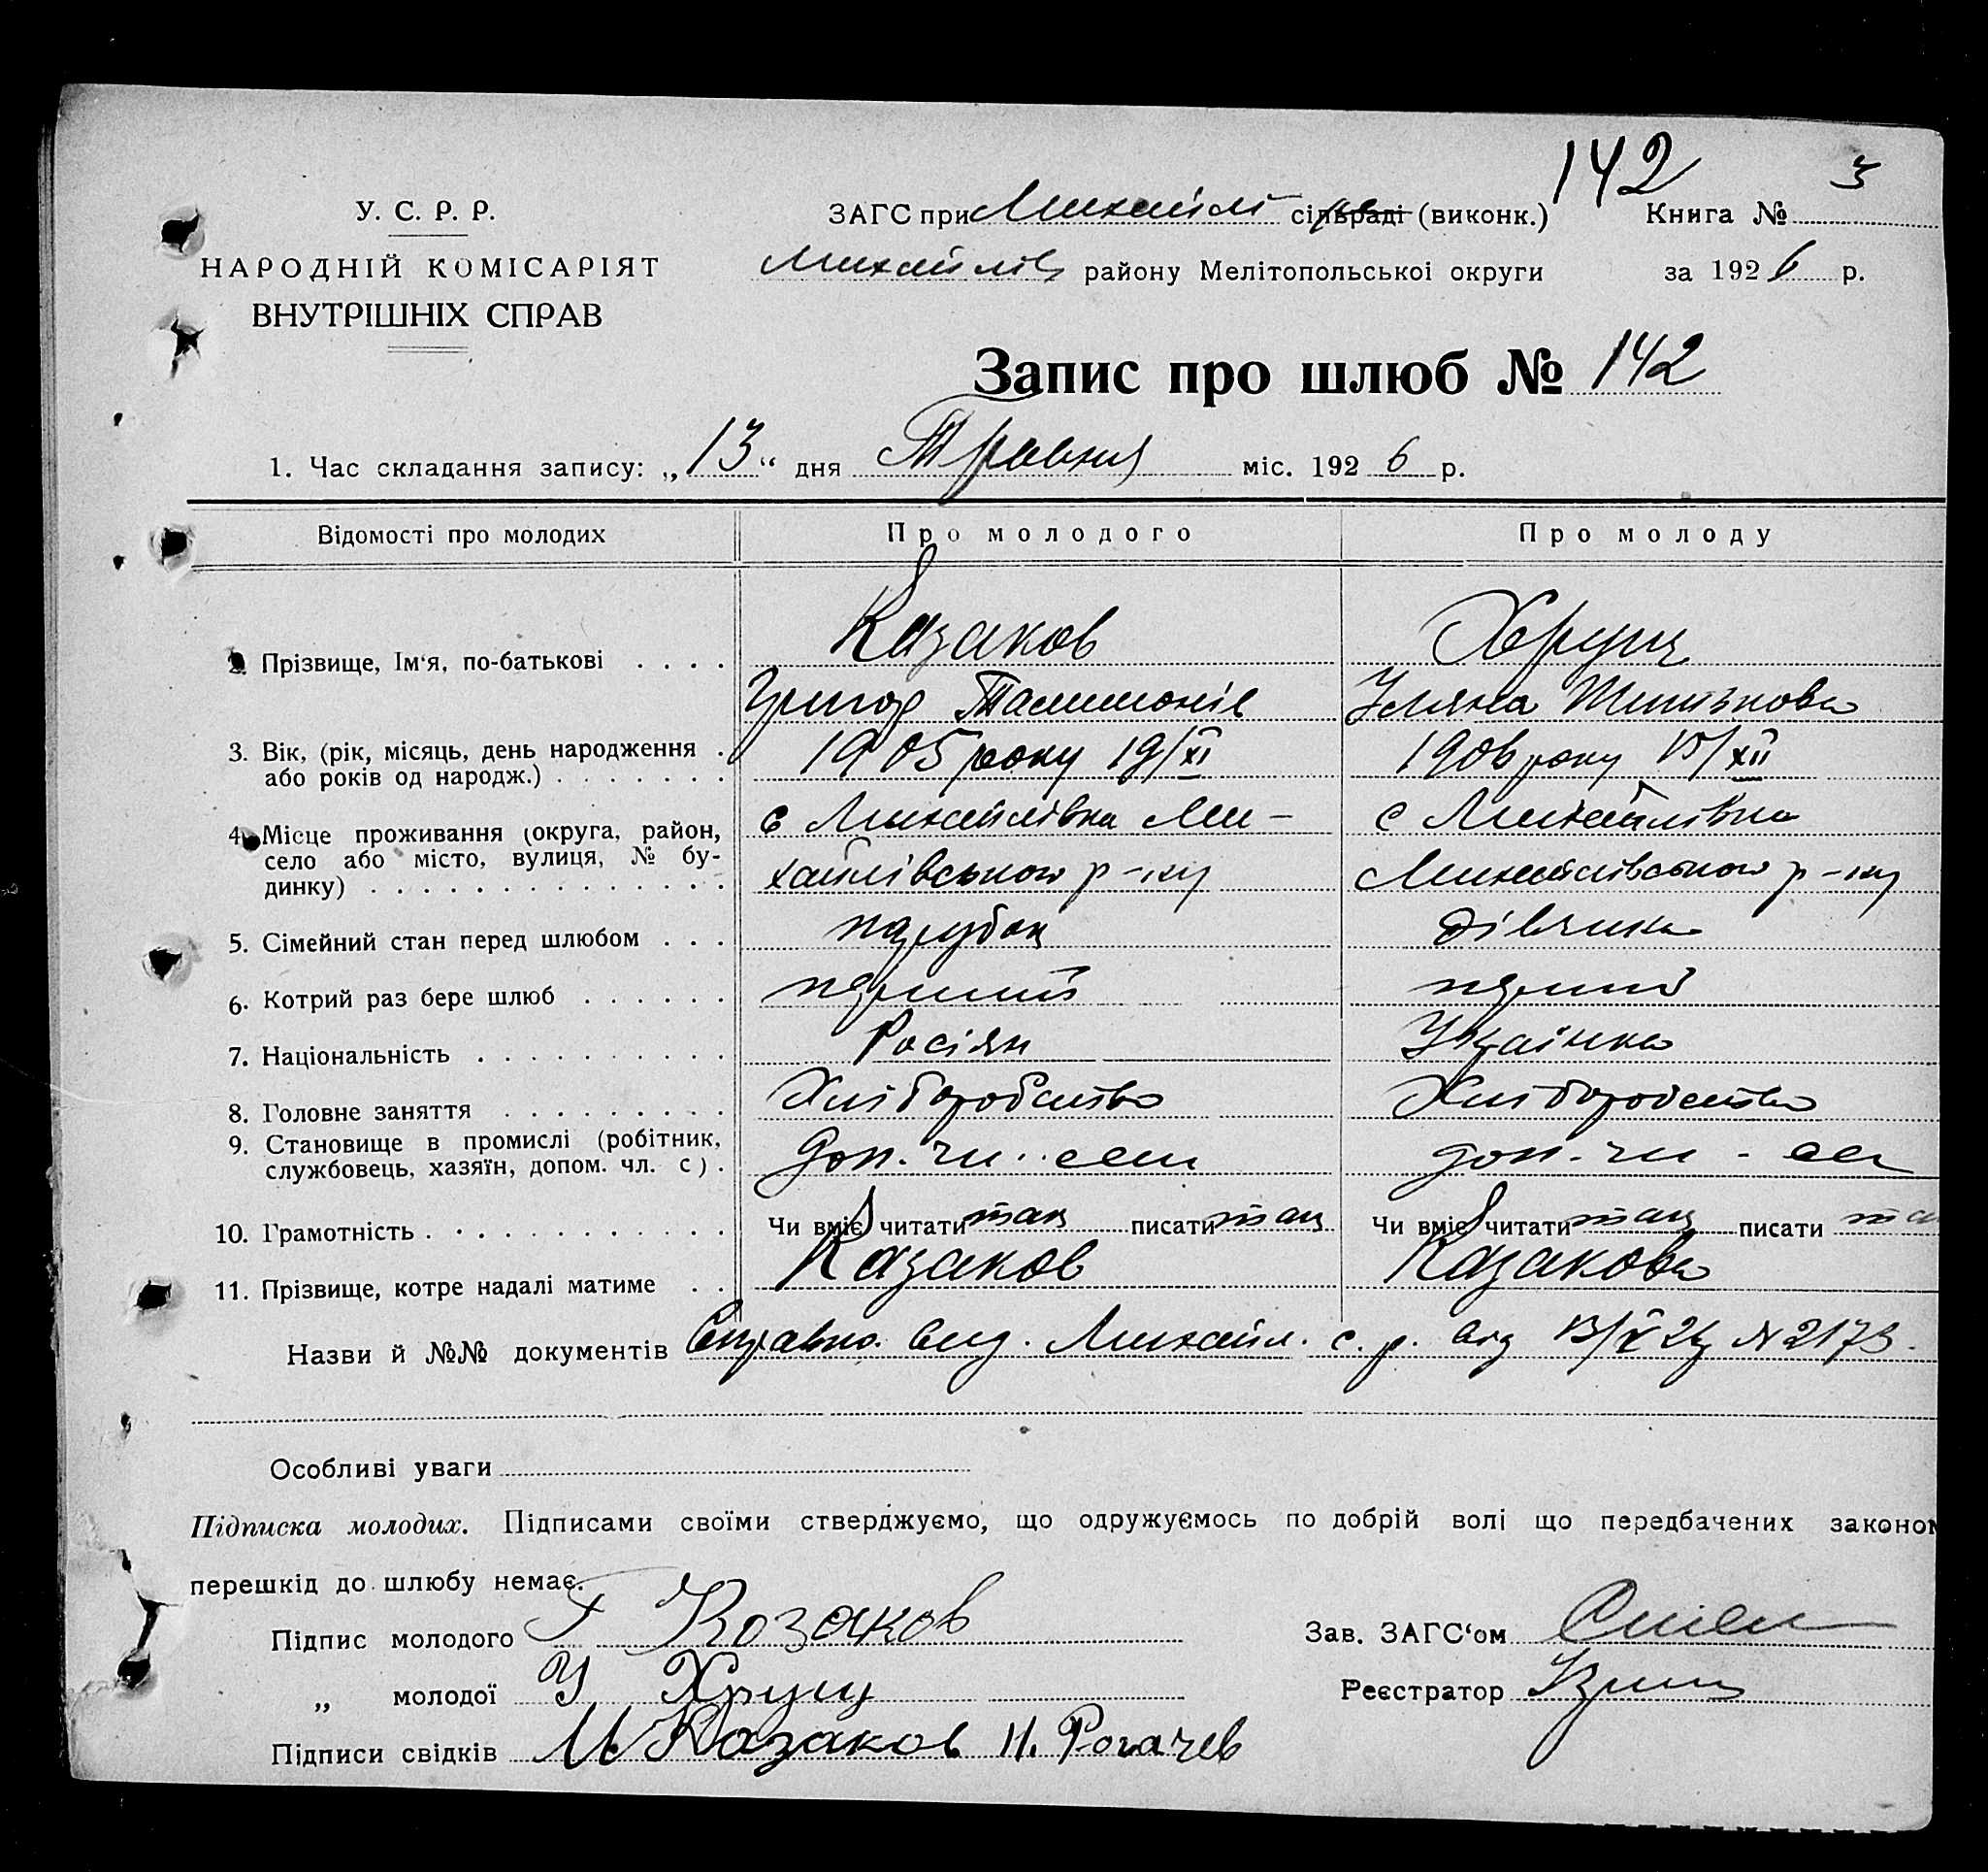 142 3
У. С. Р. Р.
ЗАГС при Михайлі сільраді (виконк.) Книга №
НАРОДНІЙ КОМІСАРІЯТ
Михайлів району Мелітопольськоі округи за 1926 р.
ВНУТРІШНІХ СПРАВ
Запис про шлюб № 142
1. Час складання запису: „13“ дня Травня міс. 1926 р.
Відомості про молодих Про молодого Про молоду
2. Прізвище, Ім‘я, по-батькові . . . . Казаков
Григор Уляна
3. Вік, (рік, місяць, день народження . 1905 року 19/XI 1906 року 15/XII
або років од народж.) . . . . . . .
4. Місце проживання (округа, район, с Михайлівка Ми- с Михайлівка
село або місто, вулиця, № бу- хайлівського р-ну Михайлівського р-ну
динку) . . . . . . . . . . . . . .
5. Сімейний стан перед шлюбом . . . парубок дівчина
6. Котрий раз бере шлюб . . . . . . перший перший
7. Національність . . . . . . . . . . Росіян Українка
8. Головне заняття . . . . . . . . . Хліборобство Хліборобство
9. Становище в промислі (робітник, доп. чл. сем доп. чл.
службовець, хазяїн, допом. чл. с) .
10. Грамотність . . . . . . . . . . . . Чи вміє читати так писати так Чи вміє читати так писати та
11. Прізвище, котре надалі матиме . . Казаков Казакова
Назви й №№ документів Михайл. с. р. від 13/V 26 N 2173.
Особливі уваги
Підписка молодих. Підписами своїми стверджуємо, що одружуємось по добрій волі що передбачених законом
перешкід до шлюбу немає.
Підпис молодого Г Козаков Зав. ЗАГС‘ом
„ молодої У Хрущ Реєстратор
Підписи свідків И Казаков Н. Рогачев